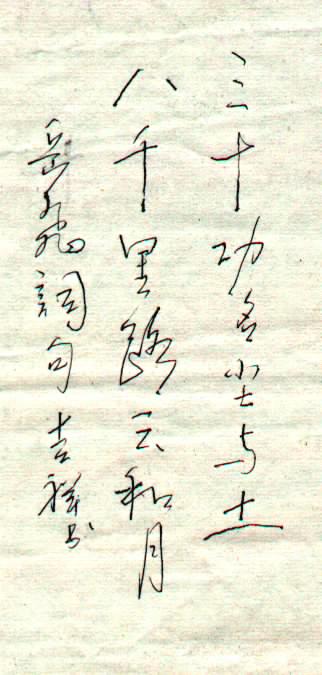 三十功名尘与土
八千里路云和月
岳飞詞句 吉祥书